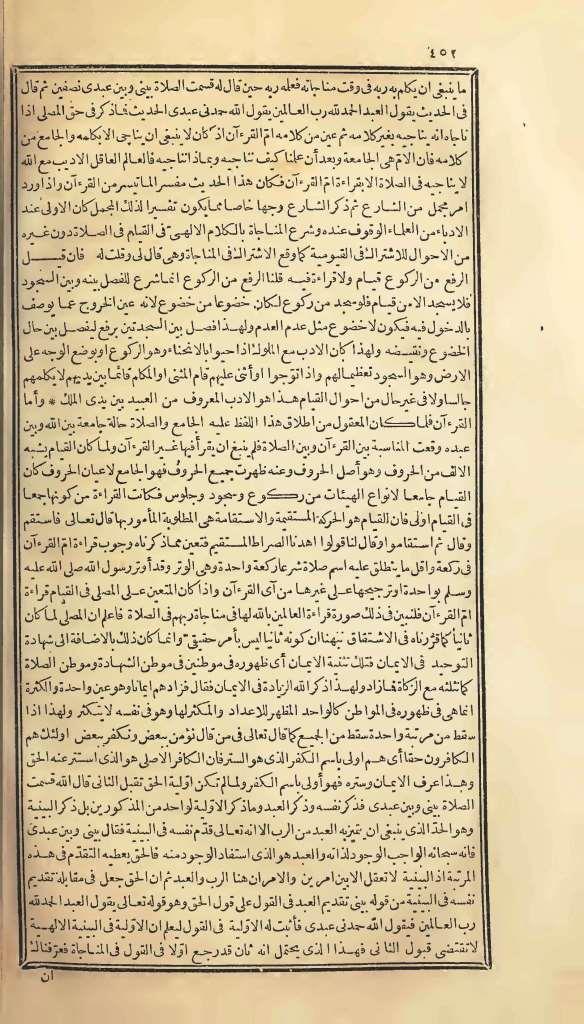 ٤٥٢
ما ينبغى ان يكلم به ربه فى وقت مناجاته فعلمه ربه حين قال له قسمت الصلاة بينى وبين عبدى نصفين ثم قال
فى الحديث يقول العبد الحمد لله رب العالمين يقول الله حمدنى عبدى الحديث فاذكر فى حق المصلى اذا
ناجاه انه يناجيه بغير كلامه ثم عين من كلامه امّ القرءآن اذ كان لا ينبغى ان يناجى الا بكلامه والجامع من
كلامه فان الامّ هى الجامعة وبعد أن علمنا كيف تناجيه وبماذا تناجيه فالعالم العاقل الاديب مع الله
لا يناجيه فى الصلاة الا بقراءة امّ القرءآن فكان هذا الحديث مفسر الما تيسر من القرءآن واذا ورد
امر مجمل من الشارع ثم ذكر الشارع وجها خاصا مما يكون تفسيرا لذلك المجمل كان الاولى عند
الادباء من العلماء الوقوف عنده وشرع المناجاة بالكلام الالهىّ فى القيام فى الصلاة دون غيره
من الاحوال للاشتراك فى القيومية كما وقع الاشتراك فى المناجاة وهى قال لى وقلت له فان قيل
الرفع من الركوع قيام ولا قراءة فيه قلنا الرفع من الركوع انما شرع للفصل بينه وبين السجود
فلا يسجد الا من قيام فلو سجد من ركوع لكان خضوعا من خضوع لانه عين الخروج عما يوصف
بالدخول فيه فيكون لا خضوع مثل عدم العدم ولهذا فصل بين السجدتين برفع ليفصل بين حال
الخضوع ونقيضه ولهذا كان الادب مع الملوك اذا حيوا بالانحناء وهو الركوع او بوضع الوجه على
الارض وهو السجود تعظيما لهم واذا توّجوا او أثنى عليهم قام المثنى او المكام قائما بين يديهم لا يكلمهم
جالسا ولا فى غير حال من احوال القيام هذا هو الادب المعروف من العبيد بين يدى الملك * وأما
القرءآن فلما كان المعقول من اطلاق هذا اللفظ عليه الجامع والصلاة حالة جامعة بين الله وبين
عبده وقعت المناسبة بين القرءآن وبين الصلاة فلم ينبغ ان يقرأ فيها غير القرءآن ولما كان القيام يشبه
الالف من الحروف وهو أصل الحروف وعنه ظهرت جميع الحروف فهو الجامع لاعيان الحروف كان
القيام جامعا لانواع الهيئات من ركوع وسجود وجلوس فكانت القراءة من كونها جمعا
فى القيام اولى فان القيام هو الحركة المستقيمة والاستقامة هى المطلوبة المأمور بها قال تعالى فاستقم
وقال ثم استقاموا وقال لنا قولوا اهدنا الصراط المستقيم فتعين مما ذكرناه وجوب قراءة امّ القرءآن
فى ركعة واقل ما ينطلق عليه اسم صلاة شرعا ركعة واحدة وهى الوتر وقد أوتر رسول الله صلى الله عليه
وسلم بواحدة وترجيحها على غيرها من آى القرءآن واذا كان المتعين على المصلى فى القيام قراءة
امّ القرءآن فلنبين فى ذلك صورة قراءة العالمين بالله لها فى مناجاة ربهم فى الصلاة فاعلم ان المصلى لما كان
ثانيا كما قرّرناه فى الاشتقاق نبهنا ان كونه ثانيا ليس بأمر حقيقىّ وانما كان ذلك بالاضافة الى شهادة
التوحيد فى الايمان فتلك تثنية الايمان أى ظهوره فى موطنين فى موطن الشهادة وموطن الصلاة
كما تثلثه مع الزكاة فما زاد ولهذا ذكر الله الزيادة فى الايمان فقال فزادهم ايمانا وهو عين واحدة والكثرة
انما هى فى ظهوره فى المواطن كالواحد المظهر للاعداد والمكثر لها وهو فى نفسه لا يتكثر ولهذا اذا
سقط من مرتبة واحدة سقط من الجميع كما قال تعالى فى من قال نؤمن ببعض ونكفر ببعض اولئك هم
الكافرون حقا أى هم اولى باسم الكفر الذى هو الستر فان الكافر الاصلى هو الذى استتر عنه الحق
وهذا عرف الايمان وستره فهو أولى باسم الكفر ولما لم تكن اولية الحق تقبل الثانى قال الله قسمت
الصلاة بينى وبين عبدى فذكر نفسه وذكر العبد وما ذكر الاولية لواحد من المذكورين بل ذكر البينية
وهو الحدّ الذى ينبغى ان يتميز به العبد من الرب الا انه تعالى قدّم نفسه فى البينية فقال بينى وبين عبدى
فانه سبحانه الواجب الوجود لذاته والعبد هو الذى استفاد الوجود منه فالحق يعطيه التقدّم فى هذه
المرتبة اذ البينية لا تعقل الا بين امرين والامران هنا الرب والعبد ثم ان الحق جعل فى مقابلة تقديم
نفسه فى البينية من قوله بينى تقديم العبد فى القول على قول الحق وهو قوله تعالى يقول العبد الحمد لله
رب العالمين فيقول الله حمدنى عبدى فأثبت له الاولية فى القول ليعلم ان الاولية فى البينية الالهية
لا تقتضى قبول الثانى فهذا الذى يحتمل انه ثان قد رجع اولا فى القول فى المناجاة فعرّفنا لك
ان